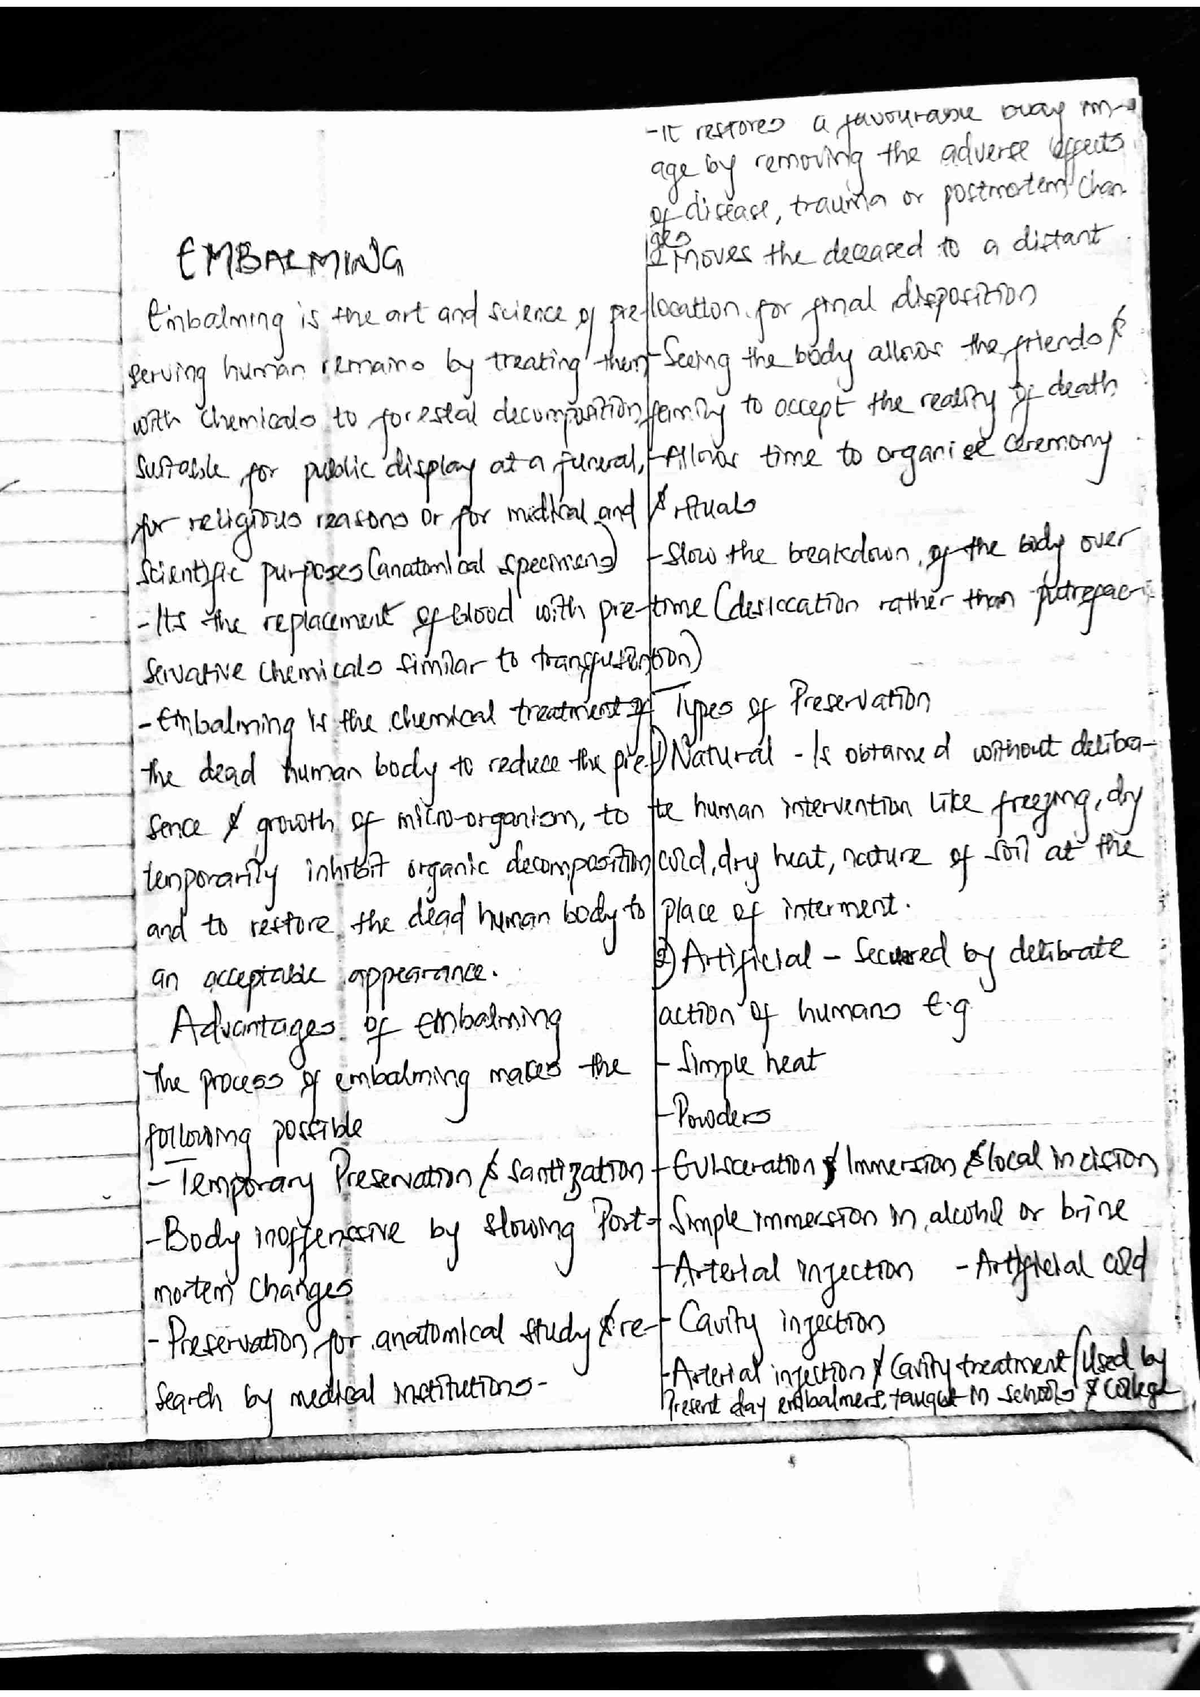 EMBALMING
Embalming is the art and science of pre-
serving human remains by treating them
with chemicals to forestal decomposition,
suitable for public display at a funeral,
for religious reasons or for medical and
scientific purposes (anatomical specimens)
- Its the replacement of blood with pre-
servative chemicals similar to transfusion
- Embalming is the chemical treatment of
the dead human body to reduce the pre-
sence & growth of micro-organism, to
temporarily inhibit organic decomposition
and to restore the dead human body to
an acceptable appearance.
Advantages of embalming
The process of embalming makes the
following possible
- Temporary Preservation & Santization
- Body inoffensive by slowing Post-
mortem Changes
- Preservation for anatomical study & re-
search by medical institutions-
- It restores a favourable body im-
age by removing the adverse effects
of disease, trauma or postmortem chan
ges
- Moves the deceased to a distant
location for final disposition
- Seeing the body allows the friends &
family to accept the reality of death
- Allows time to organise ceremony
& rituals
- Slow the breakdown of the body over
time (desiccation rather than putrefac-
tion)
Types of Preservation
1) Natural - Is obtained without deliba-
te human intervention like freezing, dry
cold, dry heat, nature of soil at the
place of interment.
2) Artificial - Secured by delibrate
action of humans E.g
- Simple heat
- Powders
- Evisceration & Immersion & local incision
- Simple immersion in alcohol or brine
- Arterial injection - Artificial cold
- Cavity injection
- Arterial injection & Cavity treatment / Used by
Present day embalmers, taught in schools & College